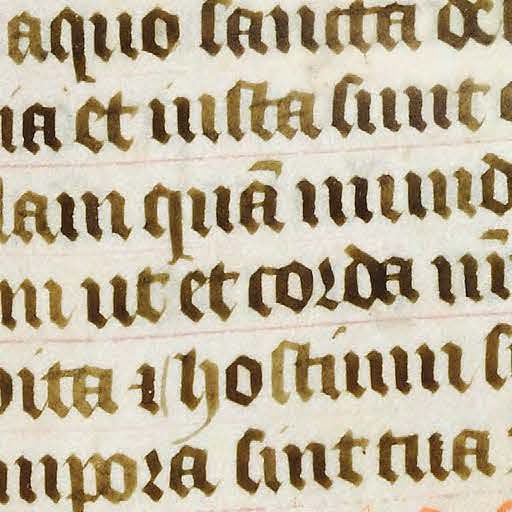 a quo sancta de
ia et iusta sunt o
lam quā mund
m ut et corda nr̄
dita ⁊ hostium s
mpora sint tua